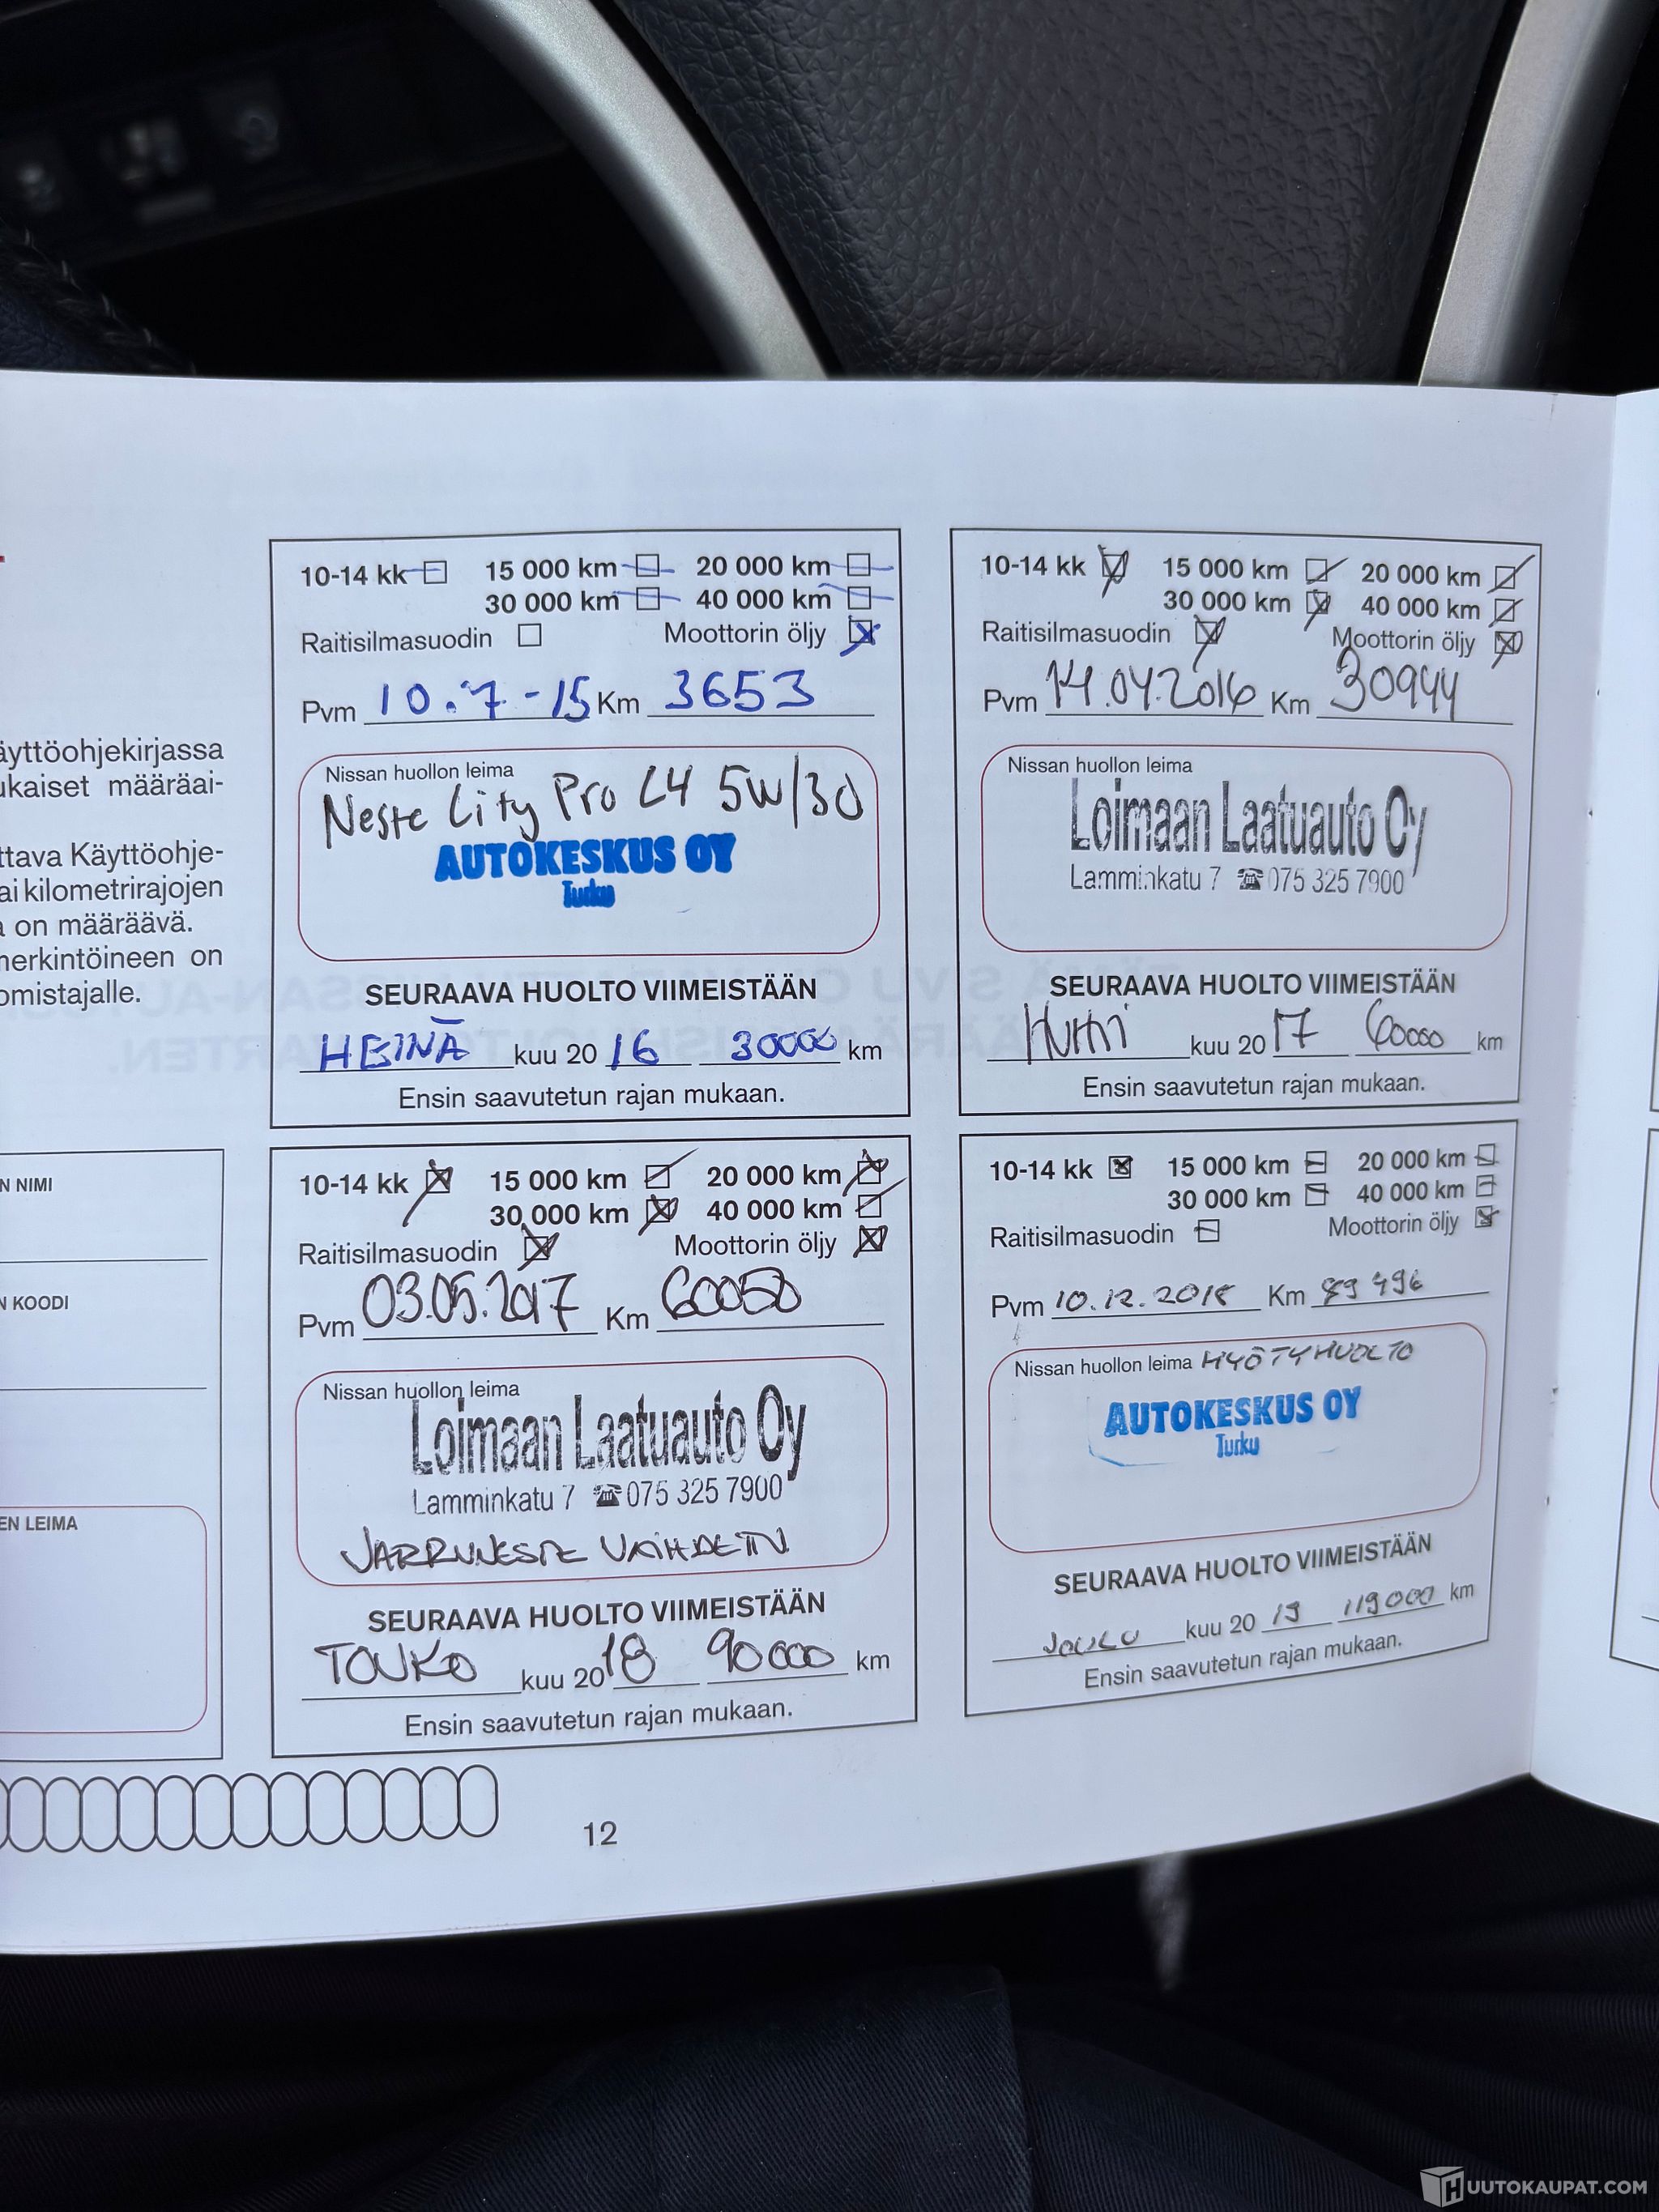 äyttöohjekirjassa
ukaiset määräai-
ttava Käyttöohje-
ai kilometrirajojen
on määräävä.
merkintöineen on
omistajalle.
N NIMI
N KOODI
EN LEIMA
10-14 kk 15 000 km 20 000 km
30 000 km 40 000 km
Raitisilmasuodin Moottorin öljy
Pvm 10.7-15 Km 3653
Nissan huollon leima
Neste City Pro C4 5W/30
AUTOKESKUS OY
Turku
SEURAAVA HUOLTO VIIMEISTÄÄN
HEINÄ kuu 20 16 30000 km
Ensin saavutetun rajan mukaan.
10-14 kk 15 000 km 20 000 km
30 000 km 40 000 km
Raitisilmasuodin Moottorin öljy
Pvm 14.04.2016 Km 30944
Nissan huollon leima
Loimaan Laatuauto Oy
Lamminkatu 7 ☎ 075 325 7900
SEURAAVA HUOLTO VIIMEISTÄÄN
Huhti kuu 20 17 60000 km
Ensin saavutetun rajan mukaan.
10-14 kk 15 000 km 20 000 km
30 000 km 40 000 km
Raitisilmasuodin Moottorin öljy
Pvm 03.05.2017 Km 60050
Nissan huollon leima
Loimaan Laatuauto Oy
Lamminkatu 7 ☎ 075 325 7900
JARRUNESTE VAIHDETTU
SEURAAVA HUOLTO VIIMEISTÄÄN
TOUKO kuu 20 18 90000 km
Ensin saavutetun rajan mukaan.
10-14 kk 15 000 km 20 000 km
30 000 km 40 000 km
Raitisilmasuodin Moottorin öljy
Pvm 10.12.2018 Km 89 496
Nissan huollon leima HYÖTYHUOLTO
AUTOKESKUS OY
Turku
SEURAAVA HUOLTO VIIMEISTÄÄN
JOULU kuu 20 19 119000 km
Ensin saavutetun rajan mukaan.
12
HUUTOKAUPAT.COM